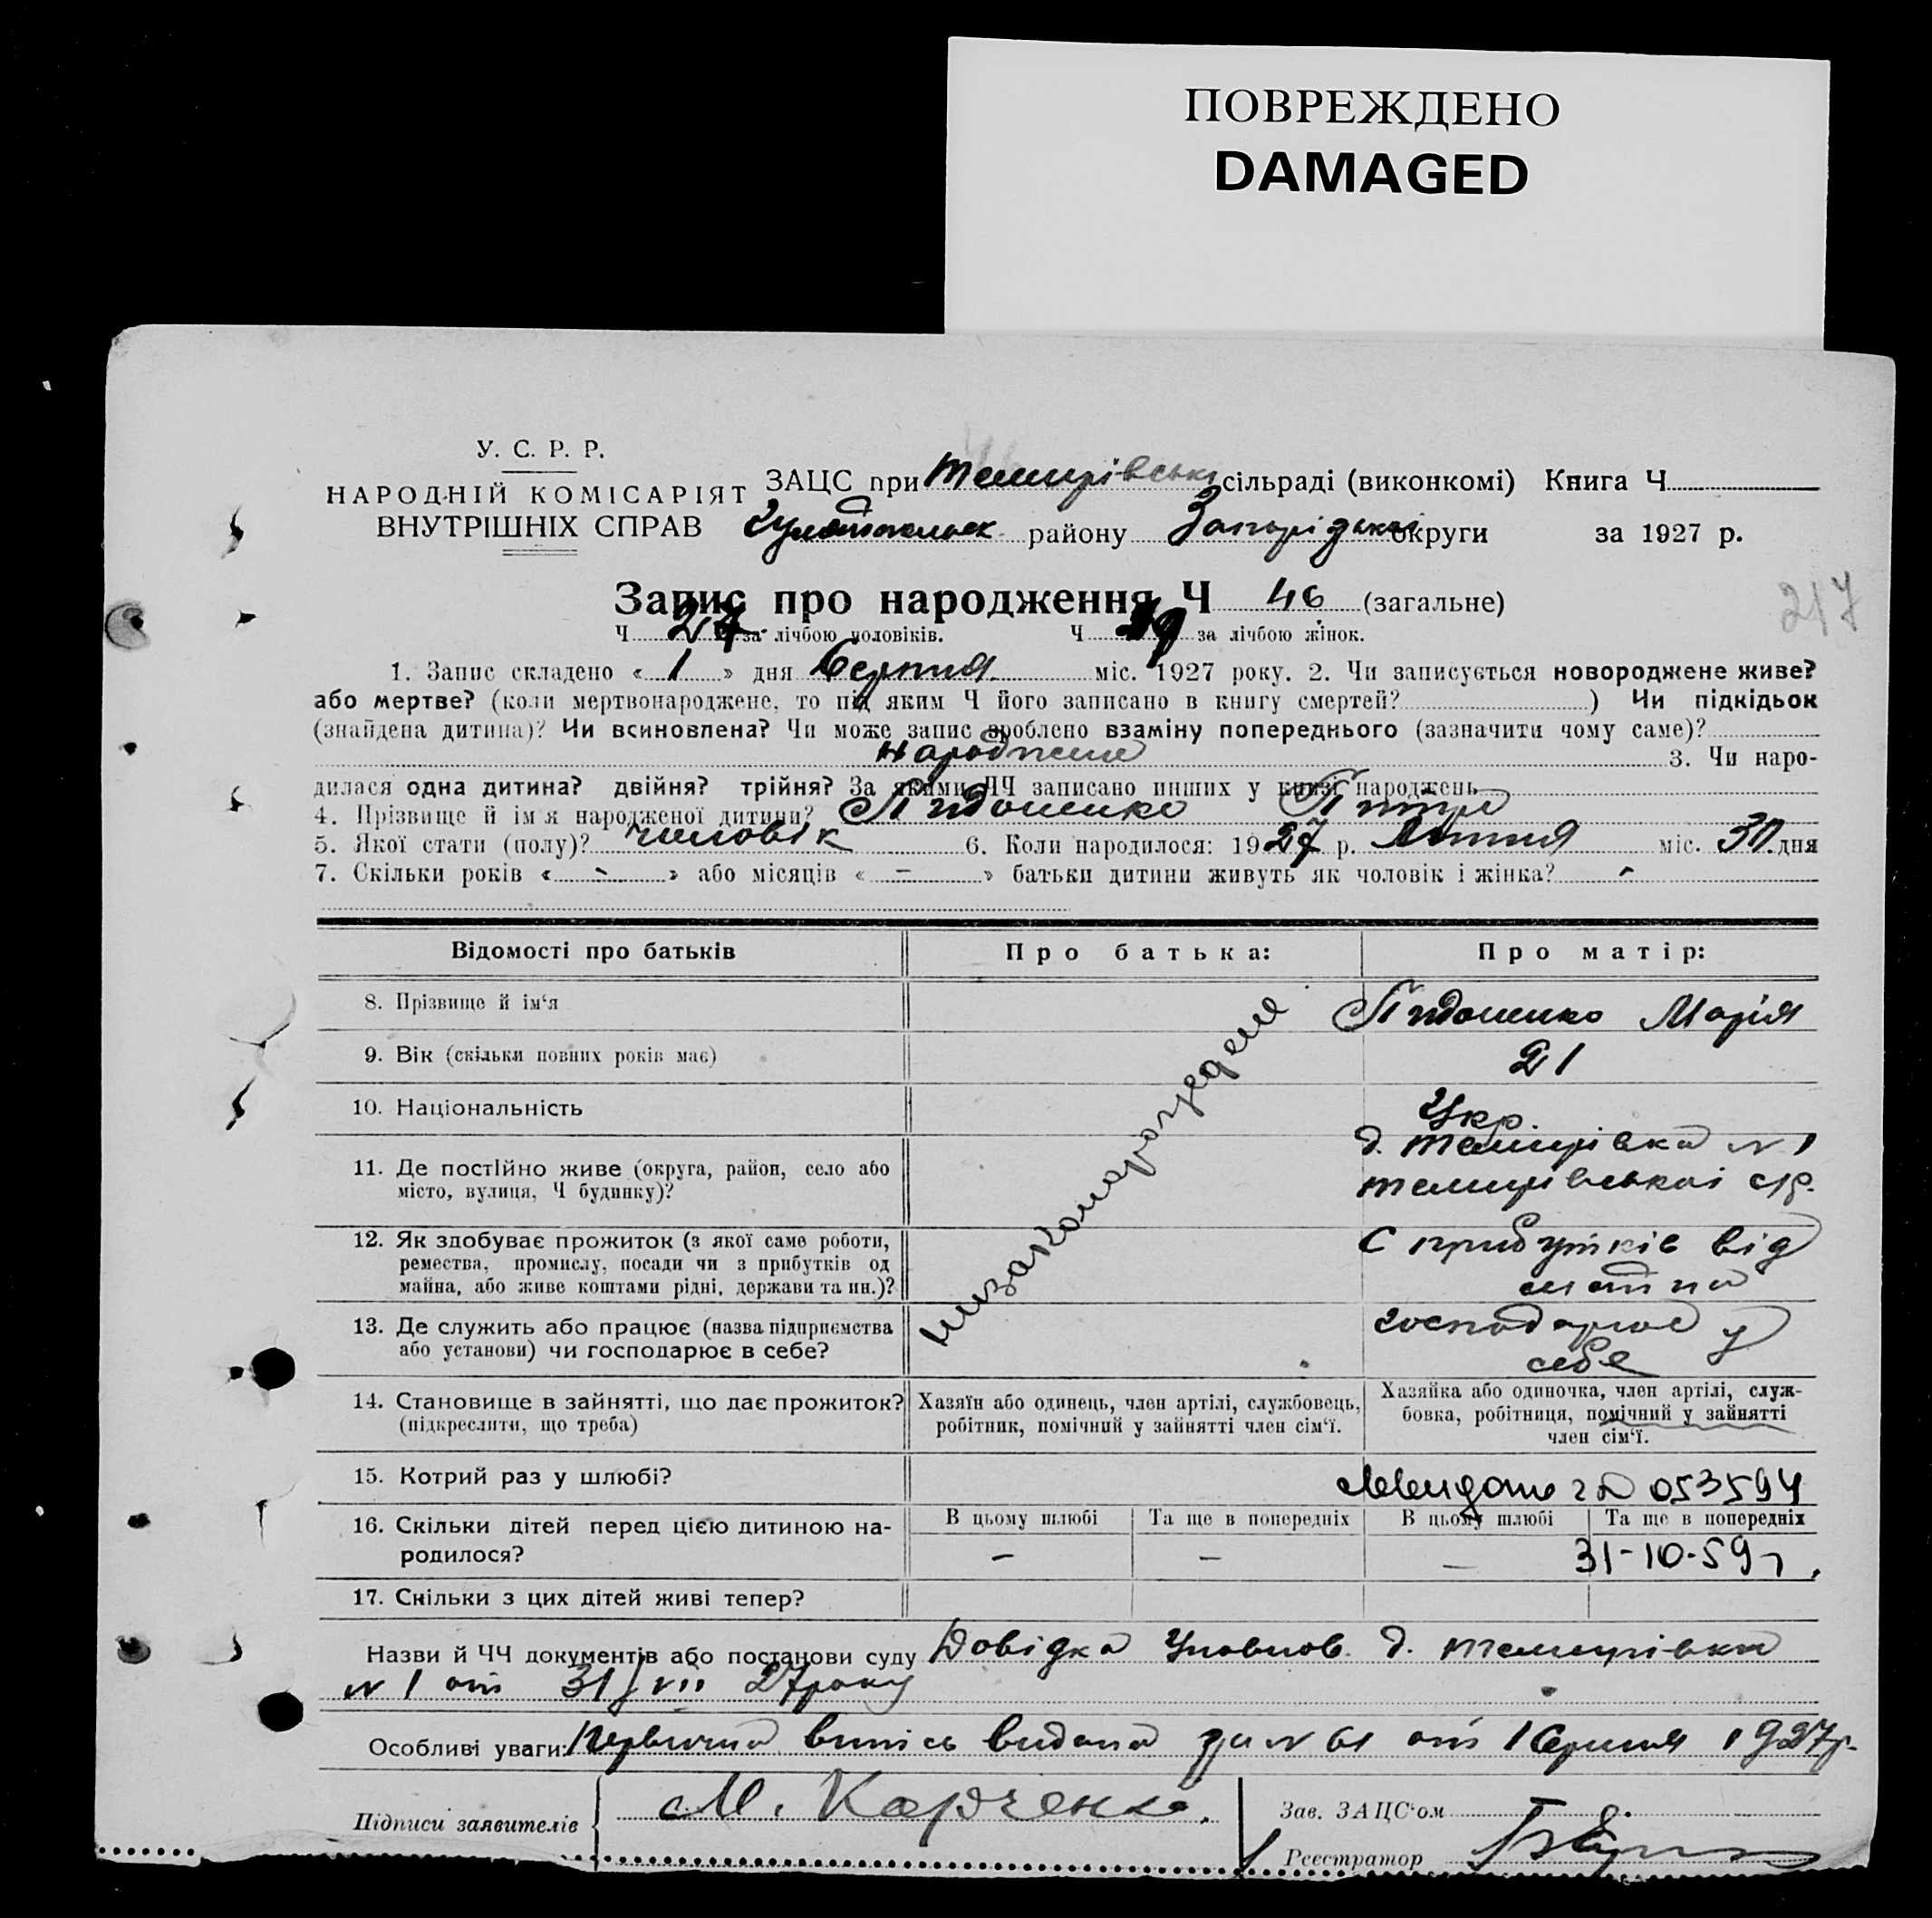 ПОВРЕЖДЕНО
DAMAGED
У. С. Р. Р.
НАРОДНІЙ КОМІСАРІЯТ
ВНУТРІШНІХ СПРАВ
ЗАЦС при Темирівські сільраді (виконкомі) Книга Ч
району Запорізької округи за 1927 р.
Запис про народження Ч 46 (загальне)
217
Ч 27 за лічбою чоловіків. Ч 19 за лічбою жінок.
1. Запис складено « 1 » дня Серпня міс. 1927 року. 2. Чи записується новороджене живе?
або мертве? (коли мертвонароджене, то під яким Ч його записано в книгу смертей? ) Чи підкідьок
(знайдена дитина)? Чи всиновлена? Чи може запис зроблено взаміну попереднього (зазначити чому саме)?
народжене 3. Чи наро-
дилася одна дитина? двійня? трійня? За якими ЧЧ записано инших у книзі народжень
4. Прізвище й ім'я народженої дитини?
5. Якої стати (полу)? чиловік 6. Коли народилося: 1927 р. Липня міс. 30 дня
7. Скільки років « - » або місяців « - » батьки дитини живуть як чоловік і жінка? -
Відомості про батьків Про батька: Про матір:
8. Прізвище й ім‘я Марія
9. Вік (скільки повних років має) 21
10. Національність Укр.
11. Де постійно живе (округа, район, село або
місто, вулиця, Ч будинку)?
д. Темирівка N 1
темирівської с/р.
12. Як здобуває прожиток (з якої саме роботи,
ремества, промислу, посади чи з прибутків од
майна, або живе коштами рідні, держави та ин.)?
С прибутків від
13. Де служить або працює (назва підприємства
або установи) чи господарює в себе?
господарює у
себе
незаконорождене
14. Становище в зайнятті, що дає прожиток?
(підкреслити, що треба)
Хазяїн або одинець, член артілі, службовець,
робітник, помічний у зайнятті член сім‘ї.
Хазяйка або одиночка, член артілі, служ-
бовка, робітниця, помічний у зайнятті
член сім‘ї.
15. Котрий раз у шлюбі? 053594
16. Скільки дітей перед цією дитиною на-
родилося?
В цьому шлюбі Та ще в попередніх В цьому шлюбі Та ще в попередніх
- - - 31-10-59 г.
17. Скільки з цих дітей живі тепер?
Назви й ЧЧ документів або постанови суду Довідка Уповнов. д. Темирівка
N 1 от 31/VII 27 року
Особливі уваги: Первична випись видана за N 61 от 1 Серпня 1927 р.
Підписи заявителів М. Харченко. Зав. ЗАЦС‘ом
Реєстратор